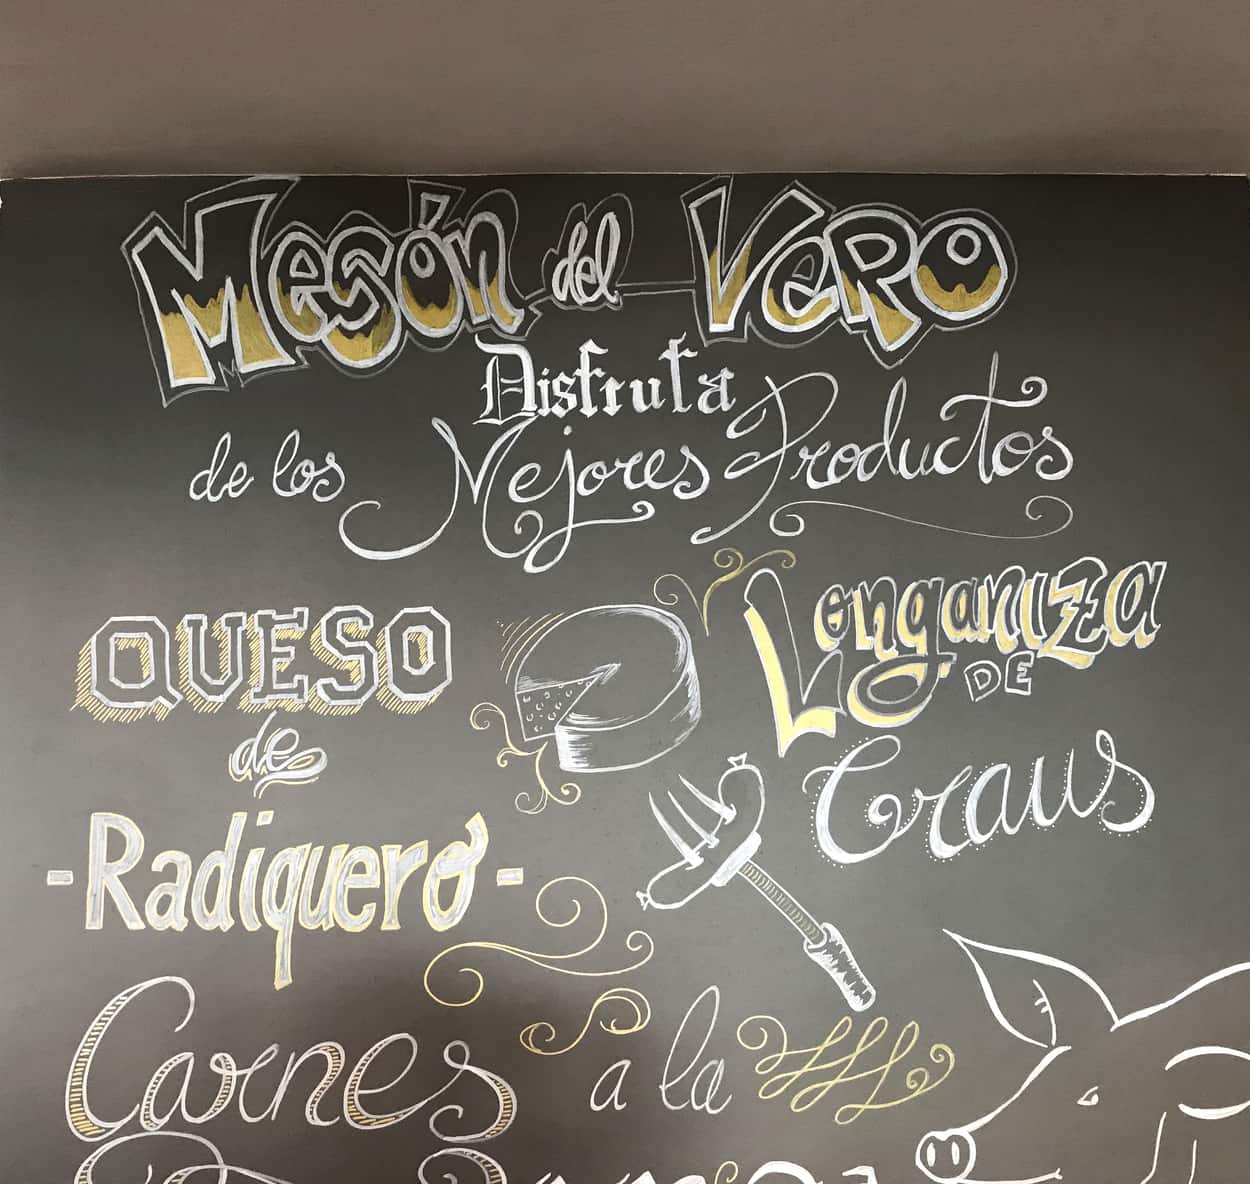 Mesón del Vero
Disfruta
de los Mejores Productos
QUESO
de
-Radiquero-
Longaniza
DE
Graus
Carnes a la